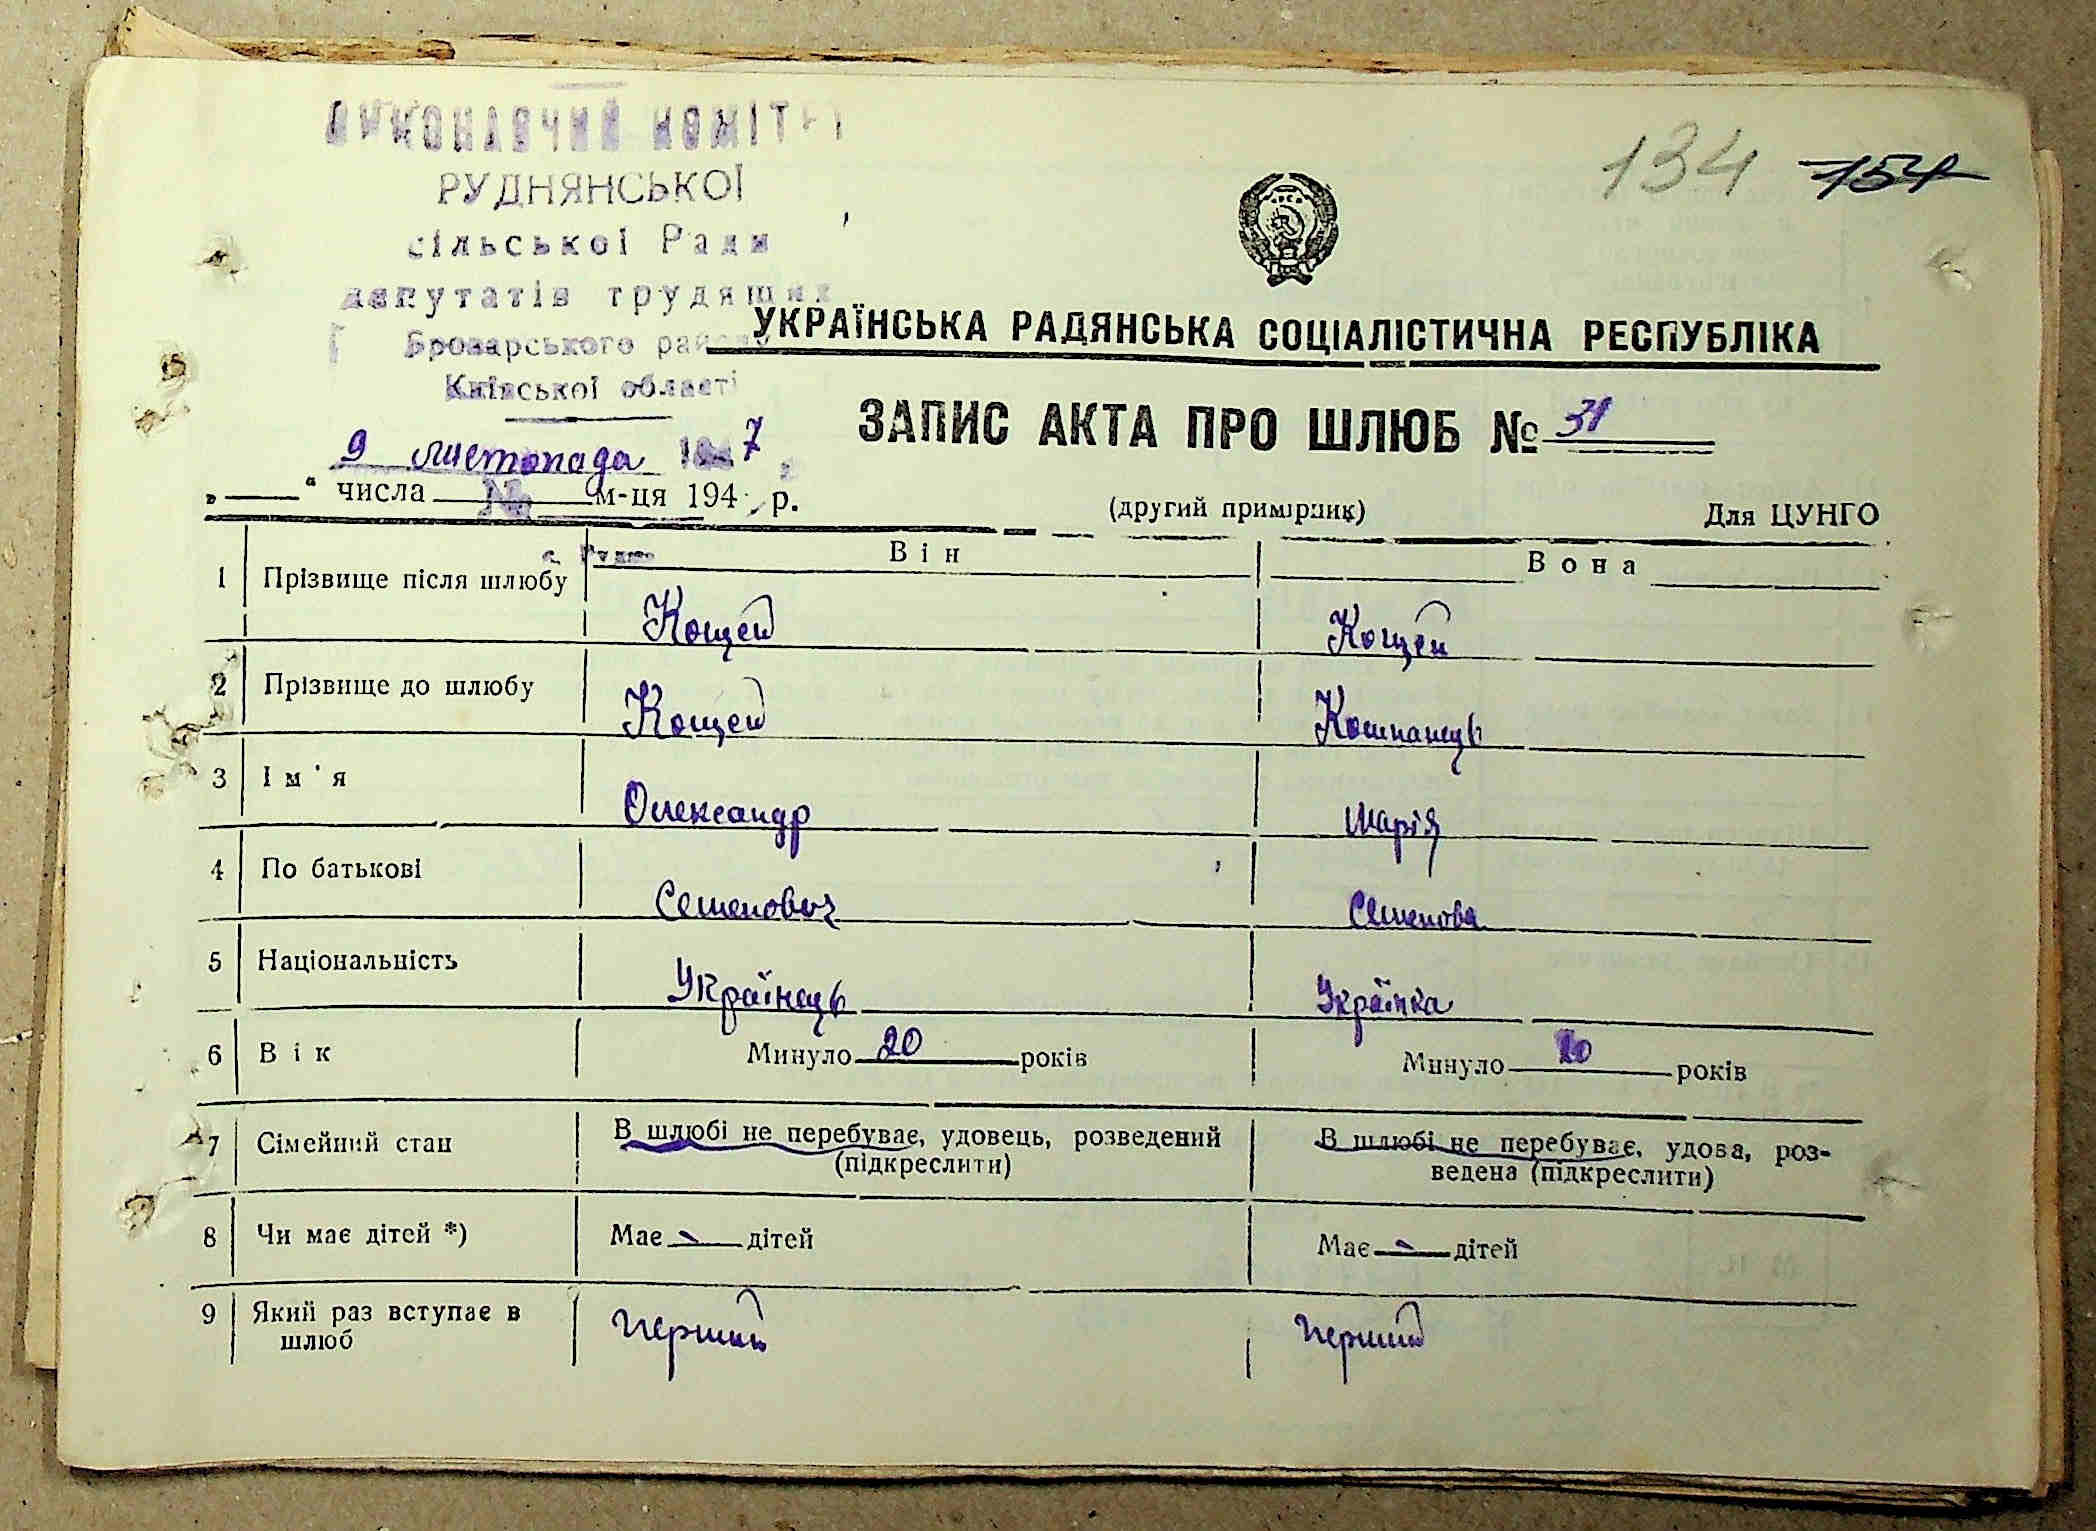 ВИКОНАВЧИЙ КОМІТЕТ
РУДНЯНСЬКОЇ
сільської Ради
депутатів трудящих
Броварського району
Київської області
134 154
УКРАЇНСЬКА РАДЯНСЬКА СОЦІАЛІСТИЧНА РЕСПУБЛІКА
ЗАПИС АКТА ПРО ШЛЮБ № 31
9 листопада 1947
„ “ числа № м-ця 194 р.
(другий примірник) Для ЦУНГО
с. Рудня
Він Вона
1 Прізвище після шлюбу Кощей Кощей
2 Прізвище до шлюбу Кощей Компанець
3 Ім'я Олександр Марія
4 По батькові Семенович Семенова
5 Національність Українець Українка
6 Вік Минуло 20 років Минуло 20 років
7 Сімейний стан В шлюбі не перебуває, удовець, розведений (підкреслити) В шлюбі не перебуває, удова, роз-
ведена (підкреслити)
8 Чи має дітей *) Має - дітей Має - дітей
9 Який раз вступає в шлюб перший перший